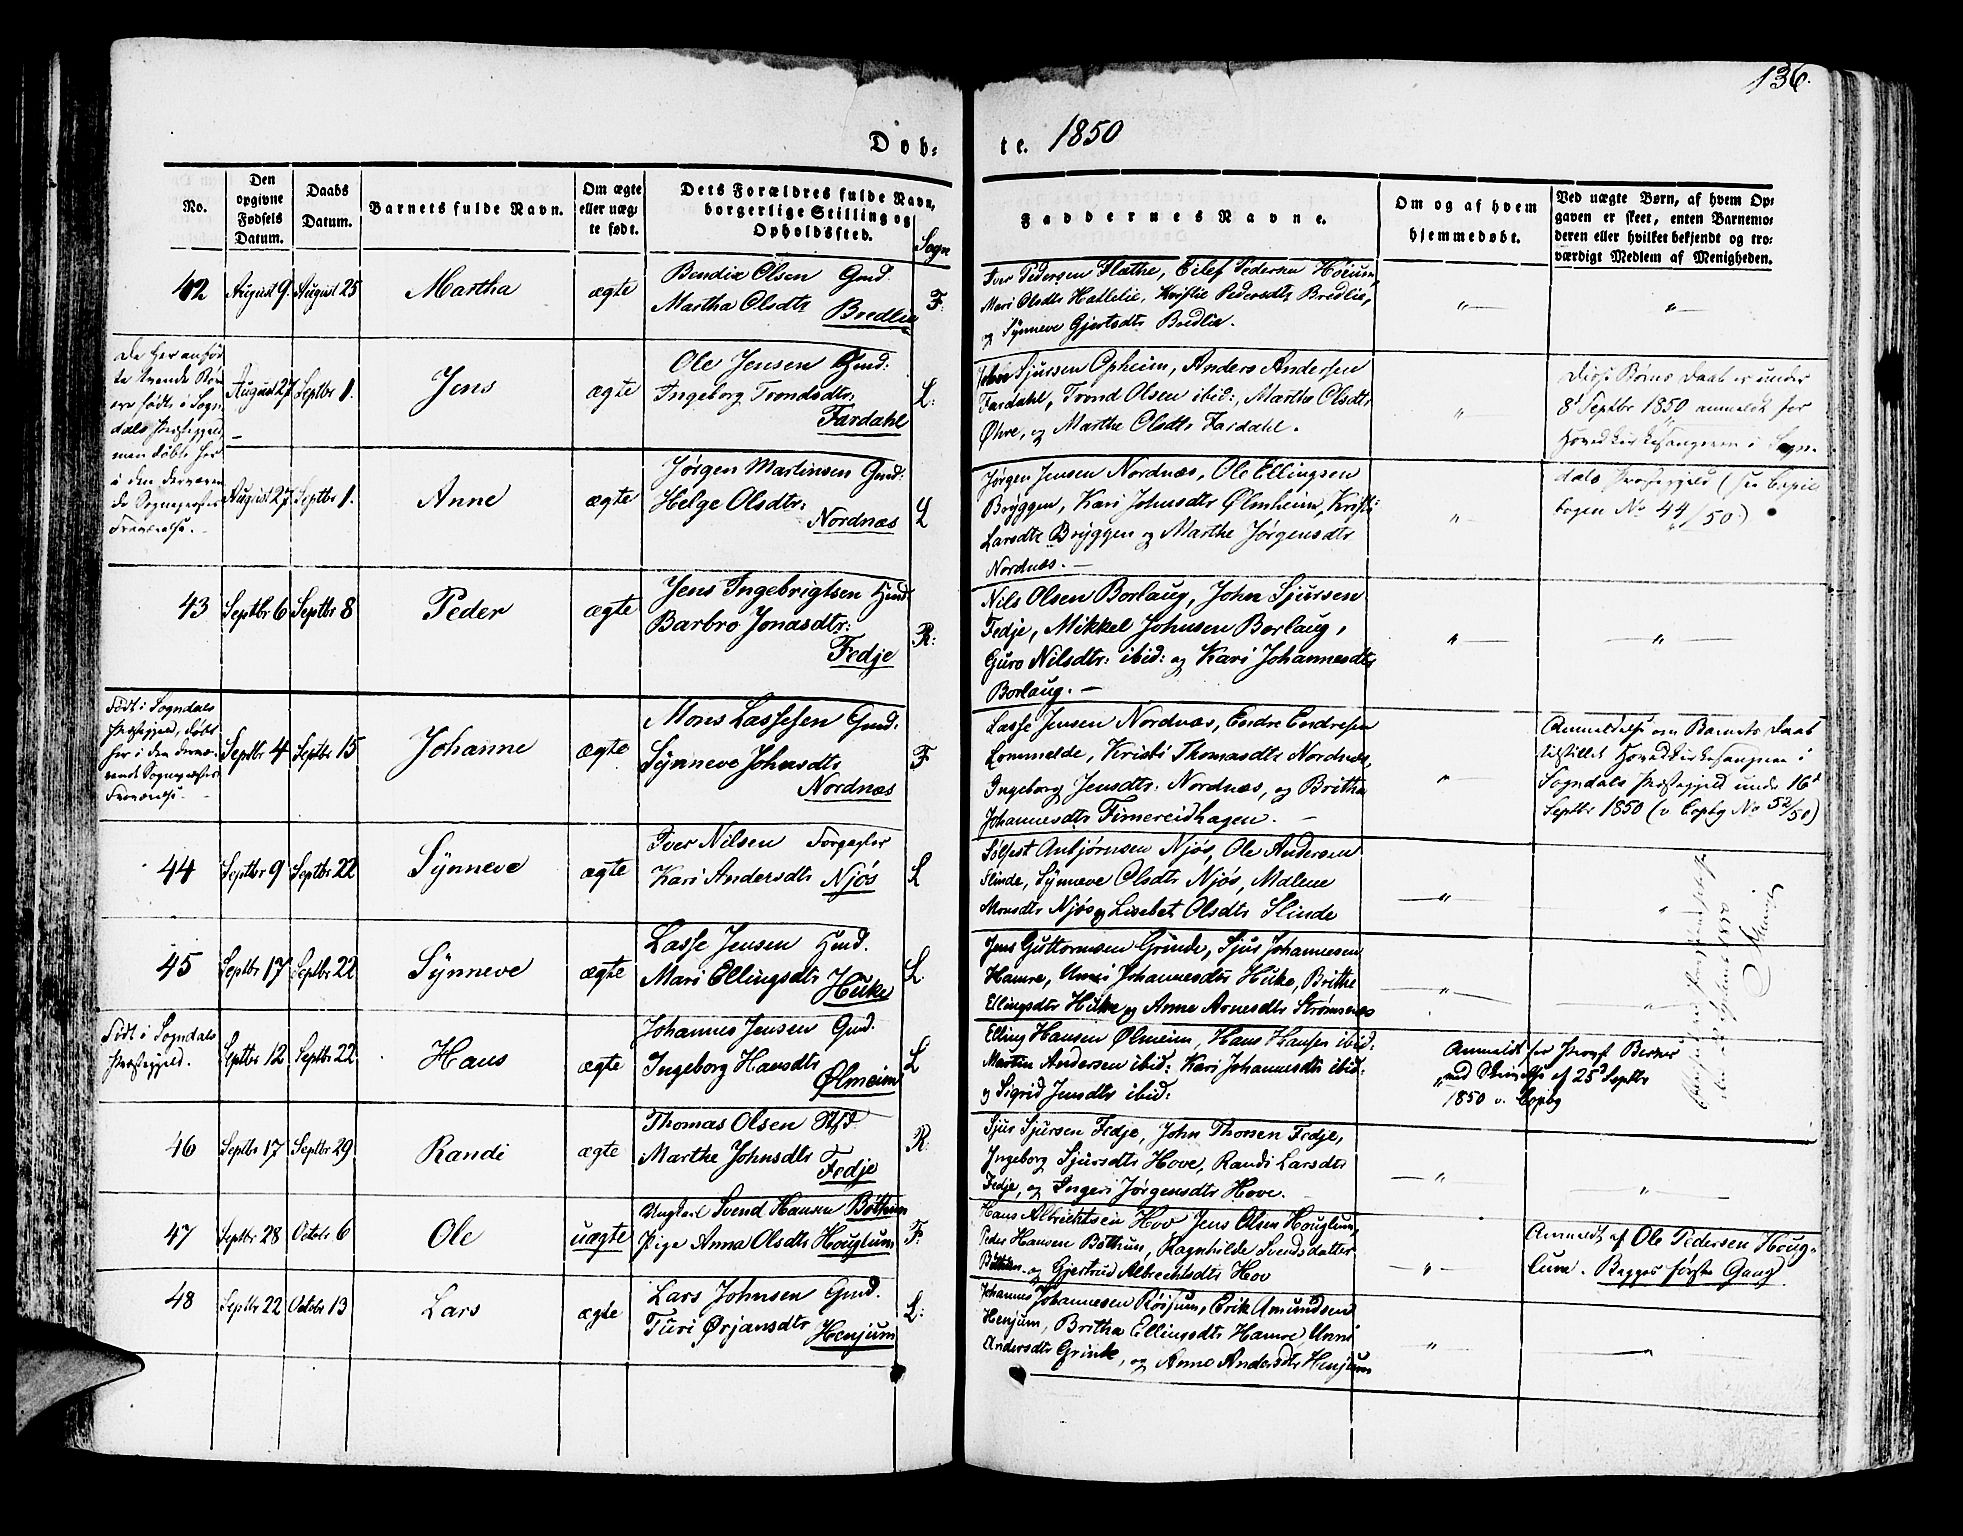 136.
Døb-
te. 1850
No.
Den opgivne Fødsels Datum.
Daabs Datum.
Barnets fulde Navn.
Om ægte eller uægte født.
Dets Forældres fulde Navn, borgerlige Stilling og Opholdssted.
Sogn
Faddernes Navne.
Om og af hvem hjemmedøbt.
Ved uægte Børn, af hvem Opgaven er skeet, enten Barnemoderen eller hvilket bekjendt og troværdigt Medlem af Menigheden.
42 August 9. August 25 Martha ægte
Bendix Olsen Gmd.
Martha Olsdtr Bredlie
F:
Iver Pedersen Flathe, Eilef Pedersen Høium,
Mari Olsdtr Hallelie, Kristie Pedersdtr Bredlie,
og Synneve Gjertsdtr Bredlie.
De her anførte tvende Børn
ere fødte i Sogndals Præstegjeld
men døbte her
i den derværende Sognepræstes
Fraværelse.
August 27 Septbr 1. Jens ægte
Ole Jensen Gmd:
Ingeborg Trondsdtr
Fardahl
L:
Sjursen Opheim, Anders Andersen
Fardahl, Trond Olsen ibid:, Martha Olsdtr
Øhre, og Marthe Olsdtr Fardahl.
Disse Børns Daab er under
8d Septbr 1850 anmeldt for
Hovedkirkesangeren i Sogndals
Præstegjeld (see Copiebogen No 44/50.)
August 27 Septbr 1. Anne ægte
Jørgen Martinsen Gmd:
Helge Olsdtr:
Nordnæs
L
Jørgen Jensen Nordnæs, Ole Ellingsen
Bryggen, Kari Johnsdtr Ølmheim, Kristi
Larsdtr Bryggen og Marthe Jørgensdtr
Nordnæs.
43 Septbr 6 Septbr 8 Peder ægte
Jens Ingebrigtsen Hmd
Barbro Jonasdtr:
Fedje
R:
Nils Olsen Borlaug, John Sjursen
Fedje, Mikkel Johnsen Borlaug,
Guro Nilsdtr: ibid: og Kari Johannesdtr
Borlaug.
Født i Sogndals
Præstegjeld, døbt
her i den derværende Sognepræstes
Fraværelse.
Septbr 4 Septbr 15 Johanne ægte
Mons Lassesen Gmd:
Synneve Johnsdtr
Nordnæs
F
Lasse Jensen Nordnæs, Endre Endresen
Lommelde, Kristi Thomasdtr Nordnæs,
Ingeborg Jensdtr: Nordnæs, og Britha
Johannesdtr Fimereidhagen.
Anmeldelse om Barnets Daab
tilstillet Hovedkirkesangeren i
Sogndals Præstegjeld under 16d
Septbr 1850 (v Copbg No 52/50)
44 Septbr 9 Septbr 22 Synneve ægte
Iver Nilsen Forpagter
Kari Andersdtr Njøs
L
Sølfest Anbjørnsen Njøs, Ole Andersen
Slinde, Synneve Olsdtr Njøs, Malene
Monsdtr Njøs og Lisebet Olsdtr Slinde
45 Septbr 17 Septbr 22 Synneve ægte
Lasse Jensen Hmd.
Mari Ellingsdtr Huke
L
Jens Guttormsen Grinde, Sjur Johannesen
Hamre, Unni Johannesdtr Huke, Brithe
Ellingsdtr Huke og Anne Arnesdtr Strømsnæs
Født i Sogndals
Præstegjeld.
Septbr 12 Septbr 22 Hans ægte
Johannes Jensen Gmd.
Ingeborg Hansdtr
Ølmeim
L
Elling Hansen Ølmeim, Hans Hansen ibid:
Martin Andersen ibid: Kari Johannesdtr ibid:
og Sigrid Jensdtr ibid:
Anmeldt for Provst
med Skrivelse af 25d Septbr
1850 v. Copbg
46 Septbr 17 Septbr 29 Randi ægte
Thomas Olsen
Marthe Johnsdtr
Fedje
R:
Sjur Sjursen Fedje, John Thorsen Fedje,
Ingeborg Sjursdtr Hove, Randi Larsdtr
Fedje, og Ingeri Jørgensdtr Hove.
47 Septbr 28 Octobr 6 Ole uægte
Ungkarl Svend Hansen Bøthun
Pige Anna Olsdtr Houglum
F:
Hans Albrechtsen Hov Jens Olsen Houglum,
Peder Hansen Bøthun, Ragnhilde Svendsdatter
Bøthun og Gjertrud Albrechtsdtr Hov
Anmeldt af Ole Pedersen Houglum.
Begges første Gang
48 Septbr 22 Octobr 13 Lars ægte
Lars Johnsen Gmd.
Turi Ørjansdtr Henjum
L:
Johannes Johannesen Røisjum, Erik Amundsen
Henjum, Britha Ellingsdtr Hamre Unni
Andersdtr Grinde, og Anne Andersdtr Henjum